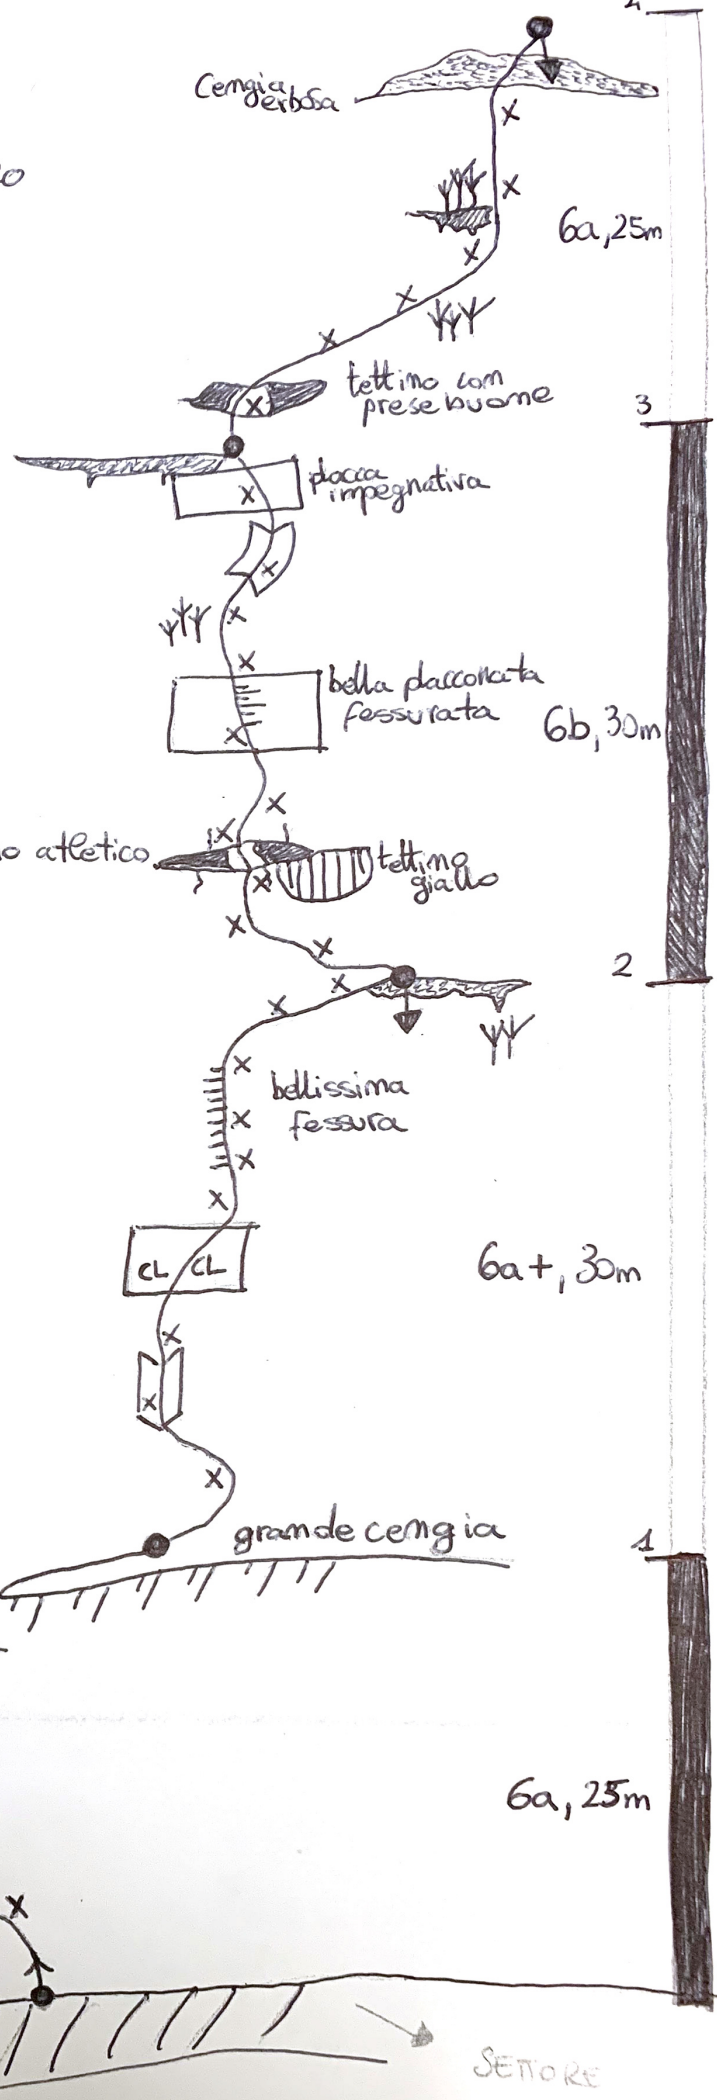 4
Cengia
erbosa
io
6a, 25m
tettino con
prese buone
3
placca
impegnativa
bella placconata
fessurata
6b, 30m
o atletico
tettino
giallo
2
bellissima
fessura
CL CL
6a+, 30m
grande cengia
1
6a, 25m
SETTORE